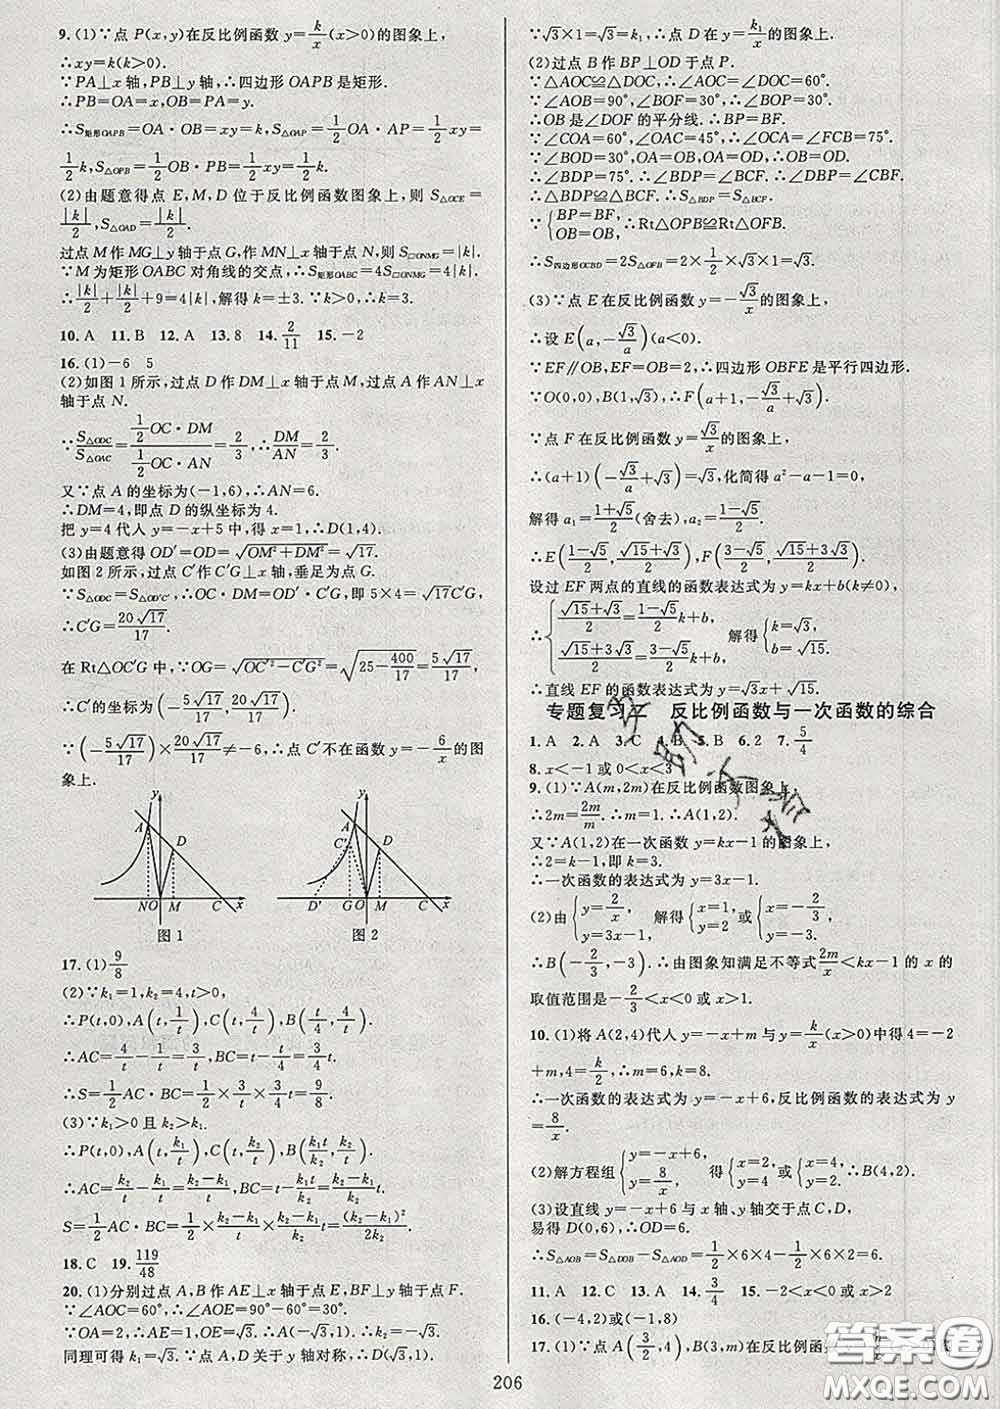 9. (1)∵点 P(x,y)在反比例函数 y=k/x(x>0)的图象上,
∴xy=k(k>0).
∵PA⊥x 轴,PB⊥y 轴,∴四边形 OAPB 是矩形.
∴PB=OA=x,OB=PA=y.
∴S矩形OAPB=OA·OB=xy=k,S△OAP=1/2OA·AP=1/2xy=
1/2k,S△OPB=1/2OB·PB=1/2xy=1/2k.
(2)由题意得点 E,M,D 位于反比例函数图象上,则 S△OCE=
|k|/2,S△OAD=|k|/2.
过点 M 作 MG⊥y 轴于点 G,作 MN⊥x 轴于点 N,则 S□ONMG=|k|.
∵M 为矩形 OABC 对角线的交点,∴S矩形OABC=4S□ONMG=4|k|.
∴|k|/2+|k|/2+9=4|k|,解得 k=±3.∵k>0,∴k=3.
10. A 11. B 12. A 13. 8 14. 2/11 15. −2
16. (1)−6 5
(2)如图 1 所示,过点 D 作 DM⊥x 轴于点 M,过点 A 作 AN⊥x
轴于点 N.
∵S△ODC/S△OAC=(1/2OC·DM)/(1/2OC·AN)=2/3,∴DM/AN=2/3.
又∵点 A 的坐标为(−1,6),∴AN=6.
∴DM=4,即点 D 的纵坐标为 4.
把 y=4 代入 y=−x+5 中,得 x=1,∴D(1,4).
(3)由题意得 OD′=OD=√(OM²+DM²)=√17.
如图 2 所示,过点 C′作 C′G⊥x 轴,垂足为点 G.
∵S△ODC=S△OD′C′,∴OC·DM=OD′·C′G,即 5×4=√17C′G.
∴C′G=20√17/17.
在 Rt△OC′G 中,∵OG=√(OC′²−C′G²)=√(25−400/17)=5√17/17,
∴C′的坐标为(−5√17/17,20√17/17).
∵(−5√17/17)×20√17/17≠−6,∴点 C′不在函数 y=−6/x的图
象上.
y A D N O M C x
图 1
y A C′ D D′ G O M C x
图 2
17. (1)9/8
(2)∵k₁=1,k₂=4,t>0,
∴P(t,0),A(t,1/t),C(t,4/t),B(t/4,4/t).
∴AC=4/t−1/t=3/t,BC=t−t/4=3/4t.
∴S=1/2AC·BC=1/2×3/t×3/4t=9/8.
(3)∵k₁>0 且 k₂>k₁.
∴P(t,0),A(t,k₁/t),C(t,k₂/t),B(k₁t/k₂,k₂/t).
∴AC=k₂/t−k₁/t=(k₂−k₁)/t,BC=t−k₁t/k₂=(k₂−k₁)/k₂t.
S=1/2AC·BC=1/2×(k₂−k₁)/t×(k₂−k₁)/k₂t=(k₂−k₁)²/2k₂.
18. C 19. 119/48
20. (1)分别过点 A,B 作 AE⊥x 轴于点 E,BF⊥y 轴于点 F.
∵∠AOC=60°,∴∠AOE=90°−60°=30°.
∵OA=2,∴AE=1,OE=√3.∴A(−√3,1).
同理可得 k=√3.∵点 A,D 关于 y 轴对称,∴D(√3,1).
∵√3×1=√3=k₁,∴点 D 在 y=k₁/x的图象上.
(2)过点 B 作 BP⊥OD 于点 P.
∵△AOC≌△DOC,∴∠AOC=∠DOC=60°.
∵∠AOB=90°,∠BOF=30°,∴∠BOP=30°.
∴OB 是∠DOF 的平分线.∴BP=BF.
∵∠COA=60°,∠OAC=45°,∴∠OCA=∠FCB=75°.
∵∠BOD=30°,OA=OB=OD,
∴∠BDP=75°.∴∠BDP=∠BCF.
∴△BDP≌△BCF.∴S△BDP=S△BCF.
∵{BP=BF,OB=OB,∴Rt△OPB≌Rt△OFB.
∴S四边形OCBD=2S△OFB=2×1/2×√3×1=√3.
(3)∵点 E 在反比例函数 y=−√3/x的图象上,
∴设 E(a,−√3/a)(a<0).
∵EF∥OB,EF=OB=2,∴四边形 OBFE 是平行四边形.
∵O(0,0),B(1,√3),∴F(a+1,−√3/a+√3).
∵点 F 在反比例函数 y=√3/x的图象上,
∴(a+1)(−√3/a+√3)=√3,化简得 a²−a−1=0.
解得 a₁=(1+√5)/2(舍去),a₂=(1−√5)/2.
∴E((1−√5)/2,(√15+√3)/2),F((3−√5)/2,(√15+3√3)/2).
设过 EF 两点的直线的函数表达式为 y=kx+b(k≠0),
∴{(√15+√3)/2=(1−√5)/2k+b,(√15+3√3)/2=(3−√5)/2k+b, 解得{k=√3,b=√15.
∴直线 EF 的函数表达式为 y=√3x+√15.
专题复习二 反比例函数与一次函数的综合
1. A 2. A 3. C 4. B 5. B 6. 2 7. 5/4
8. x<−1 或 0<x<3
9. (1)∵A(m,2m)在反比例函数图象上,
∴2m=2m/m.∴m=1.∴A(1,2).
又∵A(1,2)在一次函数 y=kx−1 的图象上,
∴2=k−1,即 k=3.
∴一次函数的表达式为 y=3x−1.
(2)由{y=2/x,y=3x−1 解得{x=1,y=2 或{x=−2/3,y=−3.
∴B(−2/3,−3).∴由图象知满足不等式2m/x<kx−1 的 x 的
取值范围是−2/3<x<0 或 x>1.
10. (1)将 A(2,4)代入 y=−x+m 与 y=k/x(x>0)中得 4=−2
+m,4=k/2,∴m=6,k=8.
∴一次函数的表达式为 y=−x+6,反比例函数的表达式为 y
=8/x.
(2)解方程组{y=−x+6,y=8/x, 得{x=2,y=4 或{x=4,y=2,∴B(4,2).
(3)设直线 y=−x+6 与 x 轴,y 轴交于点 C,D,
易得 D(0,6),∴OD=6.
∴S△AOB=S△DOB−S△AOD=1/2×6×4−1/2×6×2=6.
11. A 12. C 13. A 14. 3/4 15. −2<x<0 或 x>2
16. (−4,2)或(−1,8)
17. (1)∵点 A(3/2,4),B(3,m)在反比例函数
206
答案圈
MXQE.COM